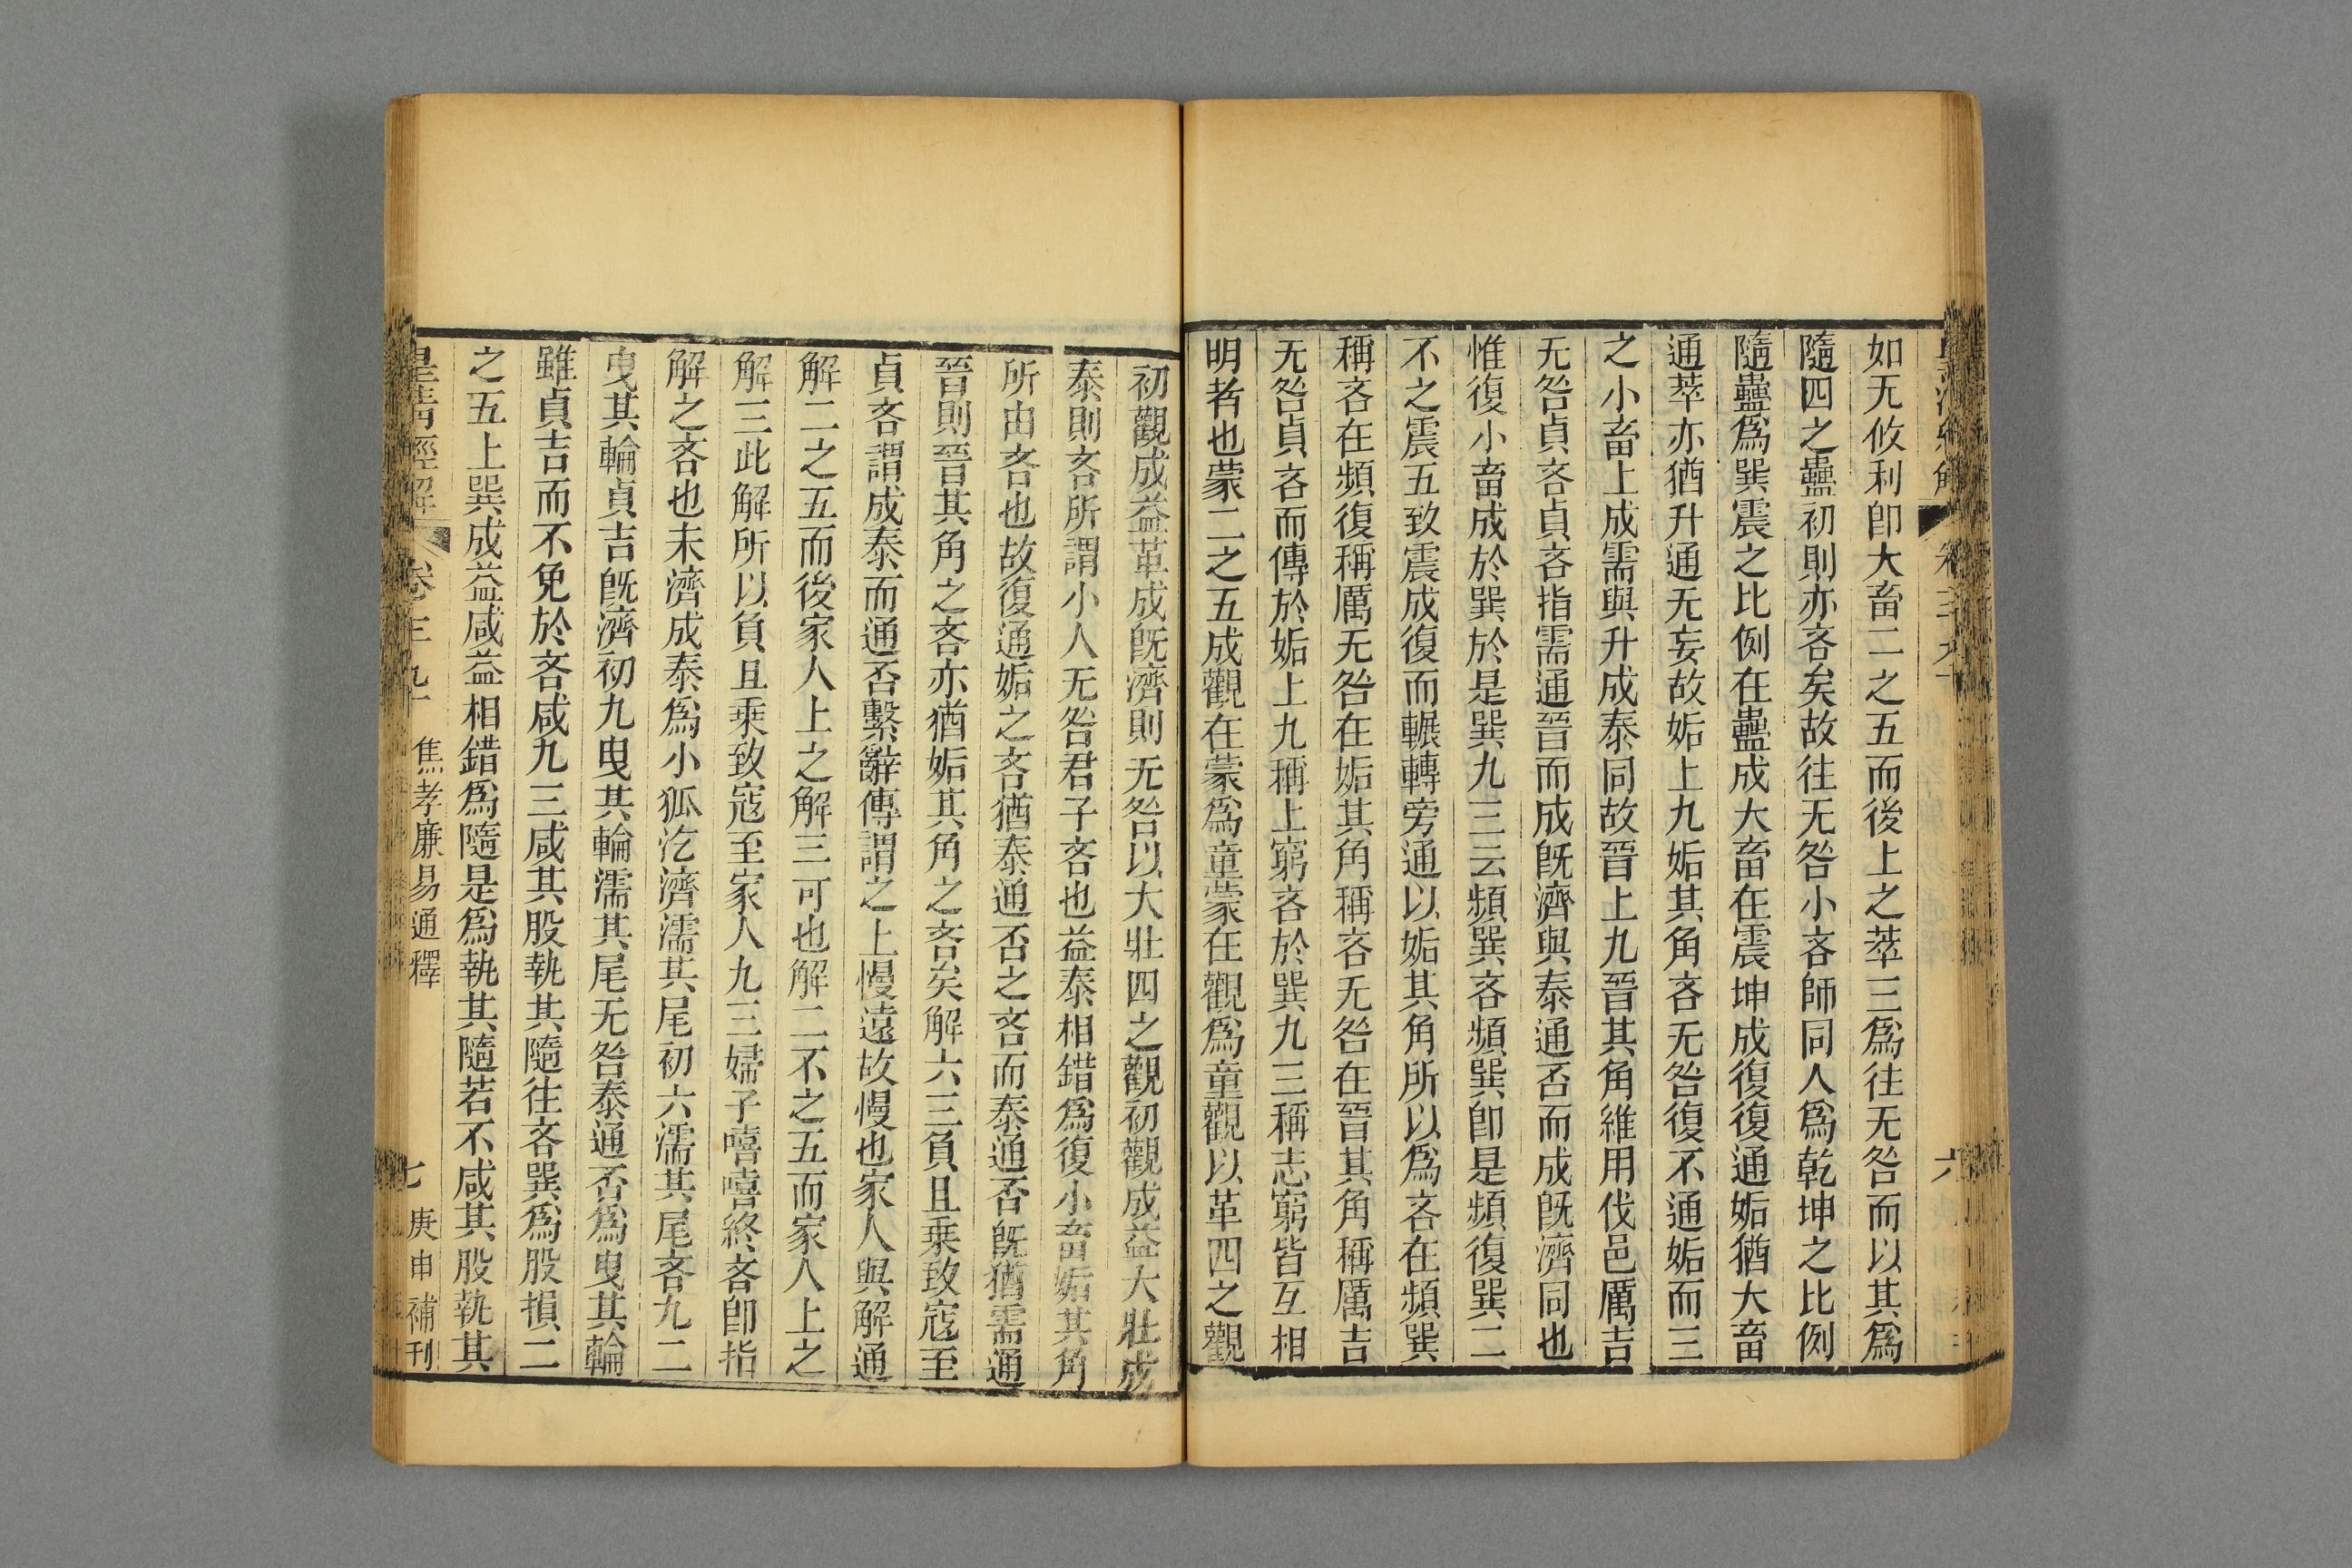 如无攸利卽大畜二之五而後上之萃三爲往无咎而以其爲
隨四之蠱初則亦吝矣故往无咎小吝師同人爲乾坤之比例
隨蠱爲巽震之比例在蠱成大畜在震坤成復復通姤猶大畜
通萃亦猶升通无妄故姤上九姤其角吝无咎復不通姤而三
之小畜上成需與升成泰同故晉上九晉其角維用伐邑厲吉
无咎貞吝貞吝指需通晉而成旣濟與泰通否而成旣濟同也
惟復小畜成於巽於是巽九三云頻巽吝頻巽卽是頻復巽二
不之震五致震成復而輾轉旁通以姤其角所以爲吝在頻巽
稱吝在頻復稱厲无咎在姤其角稱吝无咎在晉其角稱厲吉
无咎貞吝而傳於姤上九稱上窮吝於巽九三稱志窮皆互相
明者也蒙二之五成觀在蒙爲童蒙在觀爲童觀以革四之觀
初觀成益革成旣濟則无咎以大壯四之觀初觀成益大壯成
泰則吝所謂小人无咎君子吝也益泰相錯爲復小畜姤其角
所由吝也故復通姤之吝猶泰通否之吝而泰通否旣猶需通
晉則晉其角之吝亦猶姤其角之吝矣解六三負且乗致寇至
貞吝謂成泰而通否繫辭傳謂之上慢遠故慢也家人與解通
解二之五而後家人上之解三可也解二不之五而家人上之
解三此解所以負且乗致寇至家人九三婦子嘻嘻終吝卽指
解之吝也未濟成泰爲小狐汔濟濡其尾初六濡其尾吝九二
曳其輪貞吉旣濟初九曳其輪濡其尾无咎泰通否爲曳其輪
雖貞吉而不免於吝咸九三咸其股執其隨往吝巽爲股損二
之五上巽成益咸益相錯爲隨是爲執其隨若不咸其股執其
皇淸經解 卷三九十 焦孝廉易通釋 七 庚申補刊